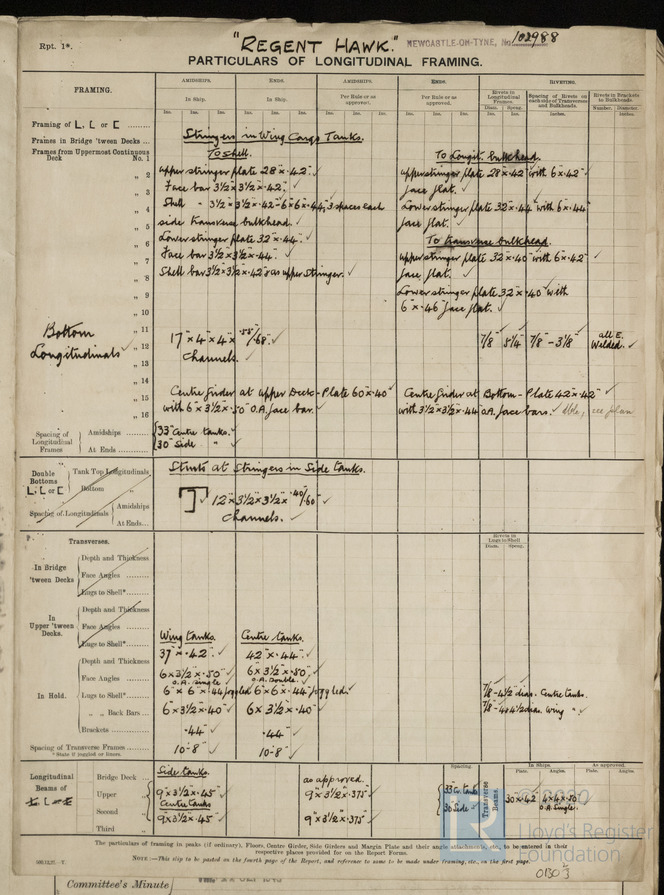 Rpt. 1*.
"REGENT HAWK."
NEWCASTLE-ON-TYNE, No. 102988
PARTICULARS OF LONGITUDINAL FRAMING.
FRAMING.
AMIDSHIPS. ENDS. AMIDSHIPS. ENDS. RIVETING.
In Ship. In Ship. Per Rule or as approved. Per Rule or as approved.
Rivets in Longitudinal Frames. Spacing of Rivets on each side of Transverses and Bulkheads. Rivets in Brackets to Bulkheads.
Ins. Ins. Ins. Ins. Ins. Ins. Ins. Ins. Ins. Ins. Ins. Ins. Diam. Spcng. Inches. Number. Diameter.
Framing of L, L or [
Frames in Bridge 'tween Decks
Stringers in Wing Cargo Tanks.
Frames from Uppermost Continuous Deck No. 1
To Shell. To Longit. bulkhead.
„ 2 upper stringer plate 28" × .42" ✓ upper stringer plate 28" × .42" with 6" × .42" ✓
„ 3 Face bar 3½ × 3½ × .42". ✓ face flat. ✓
„ 4 Shell - 3½" × 3½" × .42" 6" × 6" × .44", 3 spaces each Lower stringer plate 32" × .44" with 6" × .44"
„ 5 side transverse bulkhead. ✓ face flat. ✓
„ 6 Lower stringer plate 32" × .44". ✓ To transverse bulkhead.
„ 7 Face bar 3½ × 3½ × .44". ✓ upper stringer plate 32" × .40" with 6" × .42" ✓
„ 8 Shell bar 3½ × 3½ × .42" as upper stringer. ✓ face flat. ✓
„ 9 Lower stringer plate 32" × .40" with
„ 10 6" × .46" face flat. ✓
Bottom Longitudinals ✓
„ 11
„ 12 17" × 4" × 4" × .55"/.68". ✓ 7/8" 5¼" 7/8" - 3 1/8" all E. Welded. ✓
„ 13 Channels. ✓
„ 14
„ 15 Centre Girder at upper Deck - Plate 60" × .40" ✓ Centre Girder at Bottom - Plate 42" × .42" ✓
„ 16 with 6" × 3½" × .50" O.A. face bar. ✓ with 3½" × 3½" × .44" O.A. face bars. ✓ see plan
Spacing of Longitudinal Frames
Amidships 33" Centre tanks. ✓
At Ends 30" Side „ ✓
Struts at Stringers in Side tanks.
Double Bottoms L, L, or [
Tank Top Longitudinals
Bottom „
12" × 3½" × 3½" × .40"/.60" ✓
Channels. ✓
Spacing of Longitudinals
Amidships
At Ends
Transverses.
Rivets in Lugs to Shell
Diam. Spcng.
In Bridge 'tween Decks
Depth and Thickness
Face Angles
Lugs to Shell*
In Upper 'tween Decks.
Depth and Thickness
Face Angles
Lugs to Shell*
Wing tanks. Centre tanks.
In Hold.
Depth and Thickness 37" × .42" ✓ 42" × .44" ✓
Face Angles 6" × 3½" × .50" ✓ O.A. single. 6" × 3½" × .50" ✓ O.A. double.
Lugs to Shell* 6" × 6" × .44" joggled 6" × 6" × .44" joggled. 7/8" - 4½ dias. Centre tanks.
„ „ Back Bars 6" × 3½" × .40" ✓ 6" × 3½" × .40" ✓ 7/8" - 4 & 4½ dias. Wing „
Brackets .44" ✓ .44" ✓
Spacing of Transverse Frames 10'-8" ✓ 10'-8" ✓
*State if joggled or liners.
Longitudinal Beams of
Spacing. In Ships. As approved.
Plate. Angles. Plate. Angles.
Bridge Deck Side tanks. as approved.
Upper „ 9" × 3½" × .45" ✓ 9" × 3½" × .375" ✓ 33" C. tank Transverse Beams. 30" × .42 4" × 4" × .50
Second „ Centre tanks 9" × 3½" × .45" ✓ 9" × 3½" × .375" ✓ 30 Side ✓ O.A. single.
Third „
The particulars of framing in peaks (if ordinary), Floors, Centre Girder, Side Girders and Margin Plate and their angle attachments, etc., to be entered in their
respective places provided for on the Report Forms.
NOTE:—This slip to be pasted on the fourth page of the Report, and reference to same to be made under framing, etc., on the first page.
© 2020
Lloyd's Register
Foundation
Committee's Minute